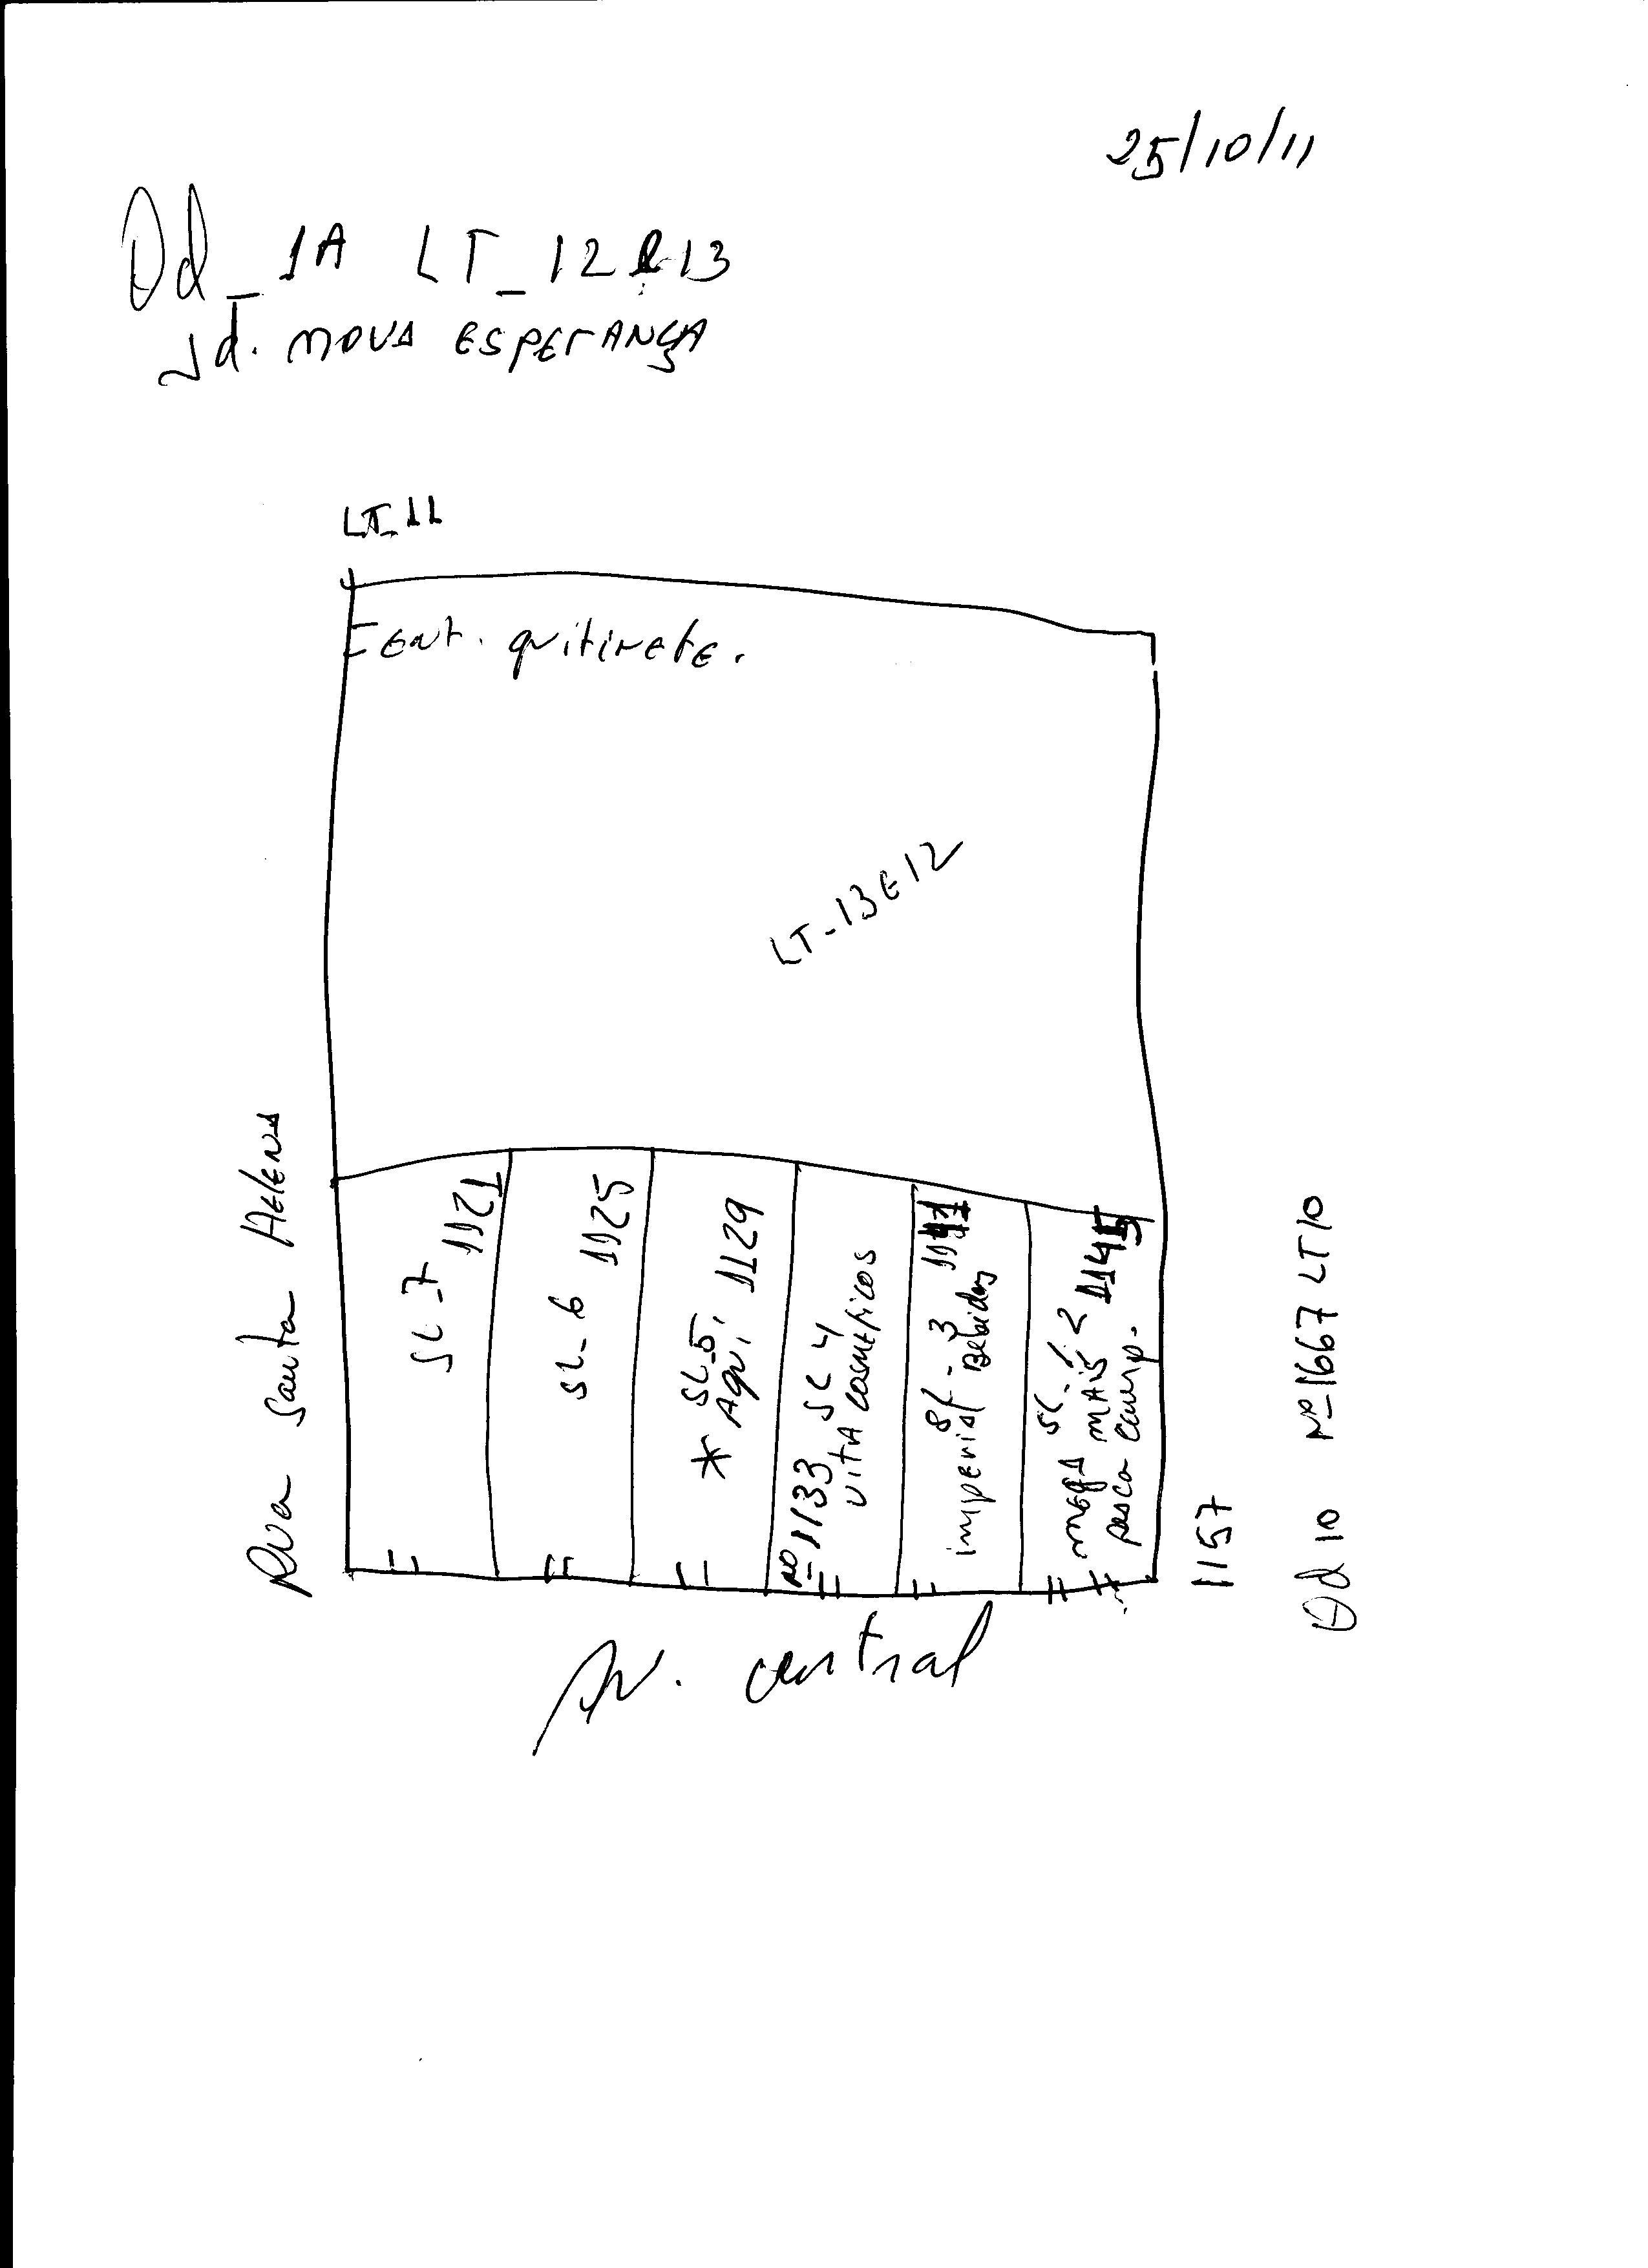 25/10/11
Qd_1A LT_12 e 13
Jd. NOVA ESPERANÇA
LT_11
ENT. quitinete.
LT-13 E 12
Rua Santa Helena
SL-7
1121
SL-6
1125
* SL-5
Aqui
1129
Nº 1133 SL 4
VITA Cosméticos
SL-3
imperial Bebidas
SL-1/2
mega MAIS
pesca camp.
1145
1157
Qd 10 Nº 1667 LT 10
Av. central